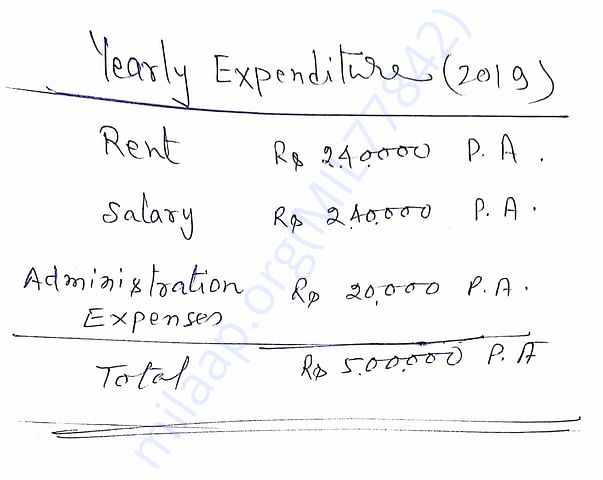 Yearly Expenditure (2019)
Rent Rs 2,40,000 P.A.
Salary Rs 2,40,000 P.A.
Administration Rs 20,000 P.A.
Expenses
Total Rs 5,00,000 P.A
milaap.org(MIL77842)